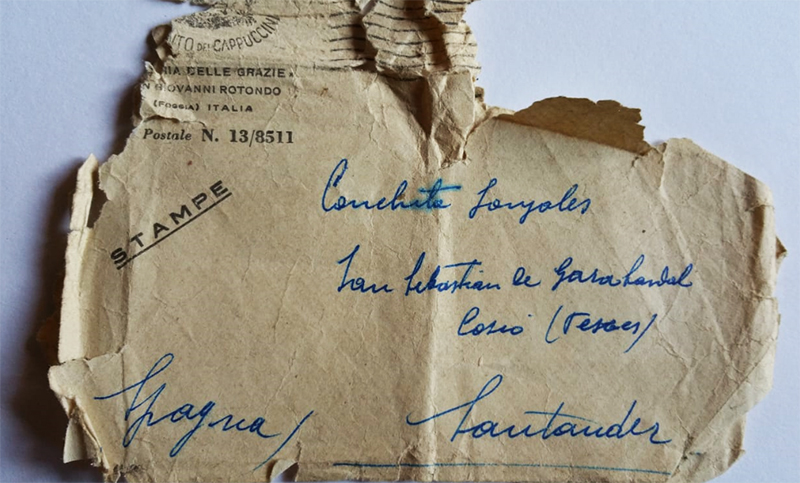 NTO DEI CAPPUCCINI
RIA DELLE GRAZIE
N GIOVANNI ROTONDO
(FOGGIA) ITALIA
Postale N. 13/8511
STAMPE
Conchita Gonzales
San Sebastian de Garabandal
Cosio (Pesues)
Spagna/ Santander